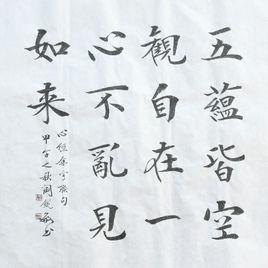 五蘊皆空
觀自在一
心不亂見
如来
心經集字聯句
甲午之秋